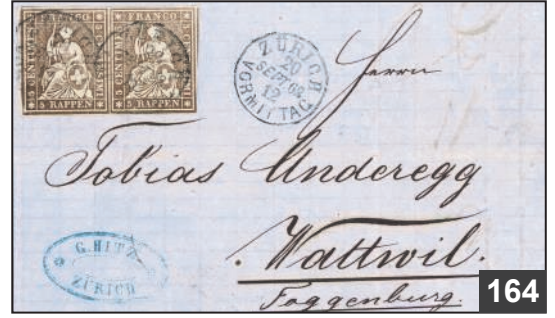 FRANCO FRANCO
5 CENTIMES 5 CENTIMES
5 RAPPEN 5 RAPPEN
ZÜRICH
20
SEPT 62
12
VORMITTAG
Herrn
Tobias Anderegg
Wattwil.
Toggenburg.
G. HITZ
ZÜRICH
164